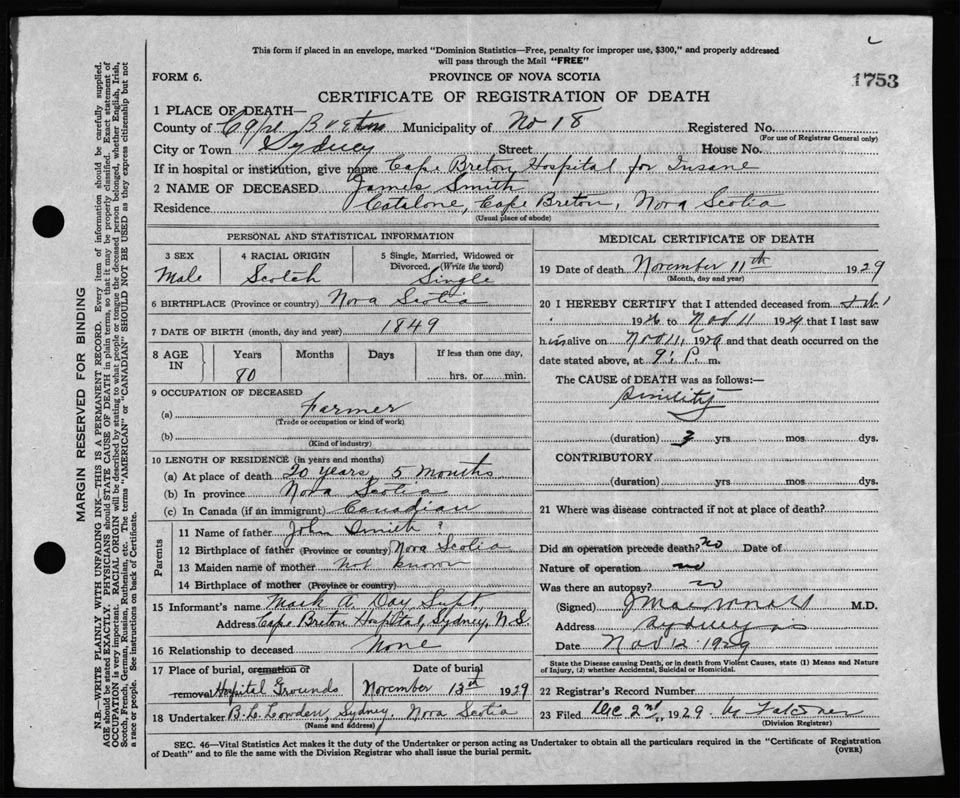 This form if placed in an envelope, marked "Dominion Statistics—Free, penalty for improper use, $300," and properly addressed
will pass through the Mail "FREE"
FORM 6.
PROVINCE OF NOVA SCOTIA
1753
CERTIFICATE OF REGISTRATION OF DEATH
1 PLACE OF DEATH—
County of Cape Breton Municipality of No 18 Registered No.
(For use of Registrar General only)
City or Town Sydney Street House No.
If in hospital or institution, give name Cape Breton Hospital for Insane
2 NAME OF DECEASED James Smith
Residence Catalone, Cape Breton, Nova Scotia
(Usual place of abode)
PERSONAL AND STATISTICAL INFORMATION
3 SEX 4 RACIAL ORIGIN 5 Single, Married, Widowed or
Divorced. (Write the word)
Male Scotch Single
6 BIRTHPLACE (Province or country) Nova Scotia
7 DATE OF BIRTH (month, day and year) 1849
8 AGE IN Years Months Days If less than one day,
80 hrs. or min.
9 OCCUPATION OF DECEASED
(a) Farmer
(Trade or occupation or kind of work)
(b)
(Kind of industry)
10 LENGTH OF RESIDENCE (in years and months)
(a) At place of death 20 years, 5 months
(b) In province Nova Scotia
(c) In Canada (if an immigrant) Canadian
Parents
11 Name of father John Smith ?
12 Birthplace of father (Province or country) Nova Scotia
13 Maiden name of mother Not known
14 Birthplace of mother (Province or country)
15 Informant's name Mark A. Day Supt,
Address Cape Breton Hospital, Sydney, N.S.
16 Relationship to deceased None
17 Place of burial, cremation or Date of burial
removal Hospital Grounds November 13th 1929
18 Undertaker B.L. Lowden, Sydney, Nova Scotia
(Name and address)
MEDICAL CERTIFICATE OF DEATH
19 Date of death November 11th 1929
(Month, day and year)
20 I HEREBY CERTIFY that I attended deceased from
1926 to Nov 11 1929 that I last saw
h is alive on Nov 11, 1929 and that death occurred on the
date stated above, at 9. P. m.
The CAUSE OF DEATH was as follows:—
Sinility
(duration) 3 yrs. mos. dys.
CONTRIBUTORY
(duration) yrs. mos. dys.
21 Where was disease contracted if not at place of death?
Did an operation precede death? no Date of
Nature of operation no
Was there an autopsy? no
(Signed) J Macdonald M.D.
Address Sydney
Date Nov 12 1929
State the Disease causing Death, or in death from Violent Causes, state (1) Means and Nature
of Injury, (2) whether Accidental, Suicidal or Homicidal.
22 Registrar's Record Number
23 Filed Dec 2nd, 1929
(Division Registrar)
SEC. 46—Vital Statistics Act makes it the duty of the Undertaker or person acting as Undertaker to obtain all the particulars required in the "Certificate of Registration
of Death" and to file the same with the Division Registrar who shall issue the burial permit.
(OVER)
MARGIN RESERVED FOR BINDING
N.B.—WRITE PLAINLY WITH UNFADING INK—THIS IS A PERMANENT RECORD. Every item of information should be carefully supplied.
AGE should be stated EXACTLY. PHYSICIANS should STATE CAUSE OF DEATH in plain terms, so that it may be properly classified. Exact statement of
OCCUPATION is very important. RACIAL ORIGIN will be described by stating to what people or tongue the deceased person belonged, whether English, Irish,
Scotch, French, German, Russian, Ruthenian, etc. The terms "AMERICAN" or "CANADIAN" SHOULD NOT BE USED as they express citizenship but not
a race or people. See instructions on back of Certificate.